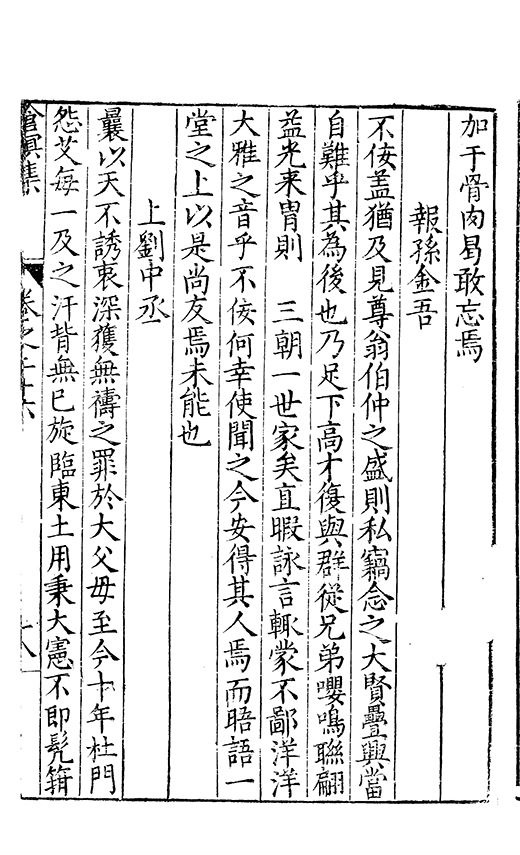 加于骨肉曷敢忘焉
報孫金吾
不佞蓋猶及見尊翁伯仲之盛則私竊念之大賢疊興當
自難乎其為後也乃足下高才復與群從兄弟嚶鳴聯翩
益光来胄則 三朝一世家矣直暇詠言輒蒙不鄙洋洋
大雅之音乎不佞何幸使聞之今安得其人焉而晤語一
堂之上以是尚友焉未能也
上劉中丞
曩以天不誘衷深獲無禱之罪於大父毋至今十年杜門
怨艾每一及之汗背無已旋臨東土用秉大憲不即髡箝
滄溟集
卷之二十六
十八